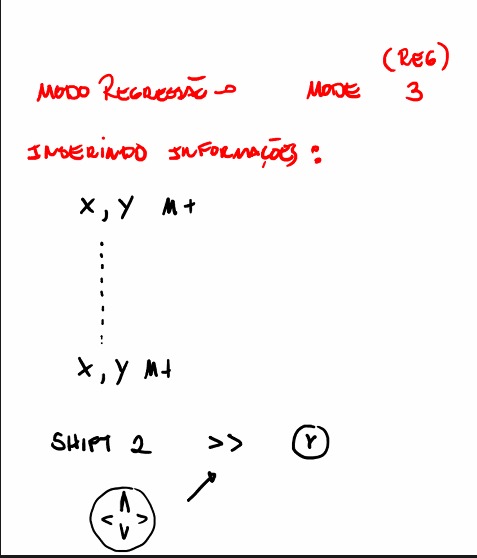 (REG)
MODO REGRESSÃO → MODE 3
INSERINDO INFORMAÇÕES:
X, Y M+
X, Y M+
SHIFT 2 >> r